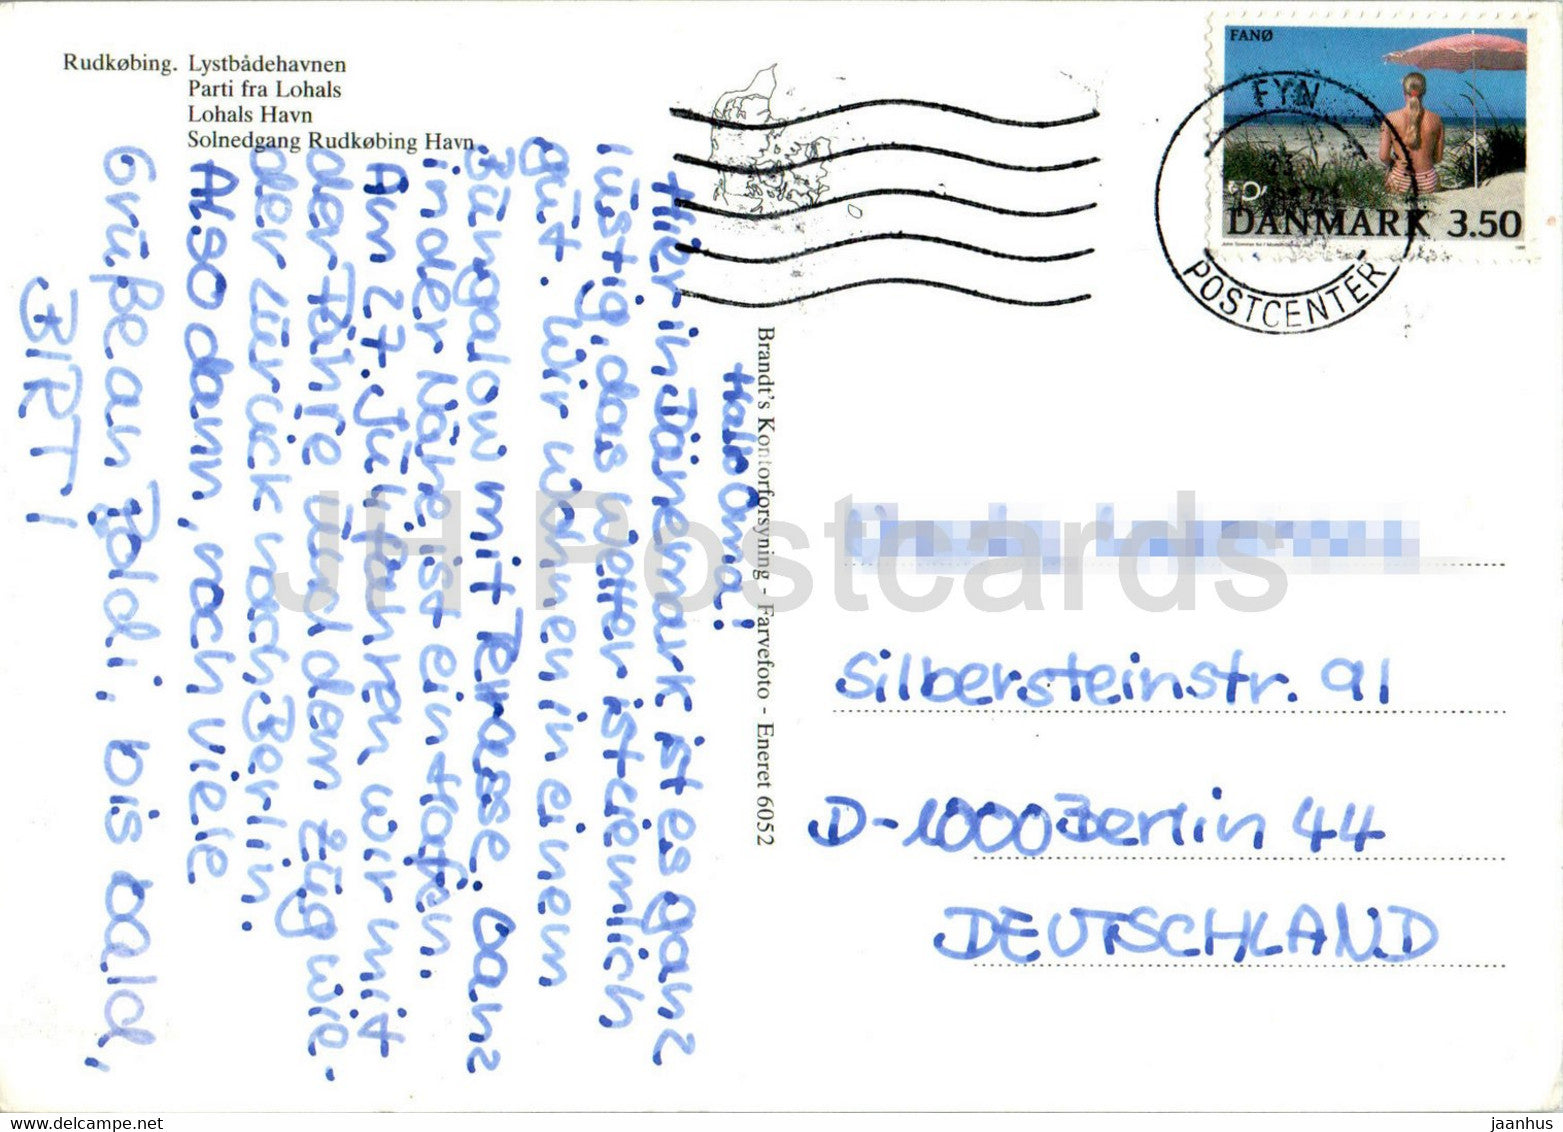 Rudkøbing. Lystbådehavnen
Parti fra Lohals
Lohals Havn
Solnedgang Rudkøbing Havn
FANØ
DANMARK 3.50
FYN
POSTCENTER
Hallo Oma!
Hier in Dänemark ist es ganz
lustig, das Wetter ist ziemlich
gut. Wir wohnen in einem
Bungalow mit Terasse. Ganz
in der Nähe ist ein Hafen.
Am 27. Juli fahren wir mit
der Fähre und dem Zug wie-
der zurück nach Berlin.
Also dann, noch viele
Grüße an Poldi, bis bald,
Brandt's Kontorforsyning - Farvefoto - Eneret 6052
Silbersteinstr. 91
D-1000 Berlin 44
DEUTSCHLAND
JH Postcards
delcampe.net
jaanhus